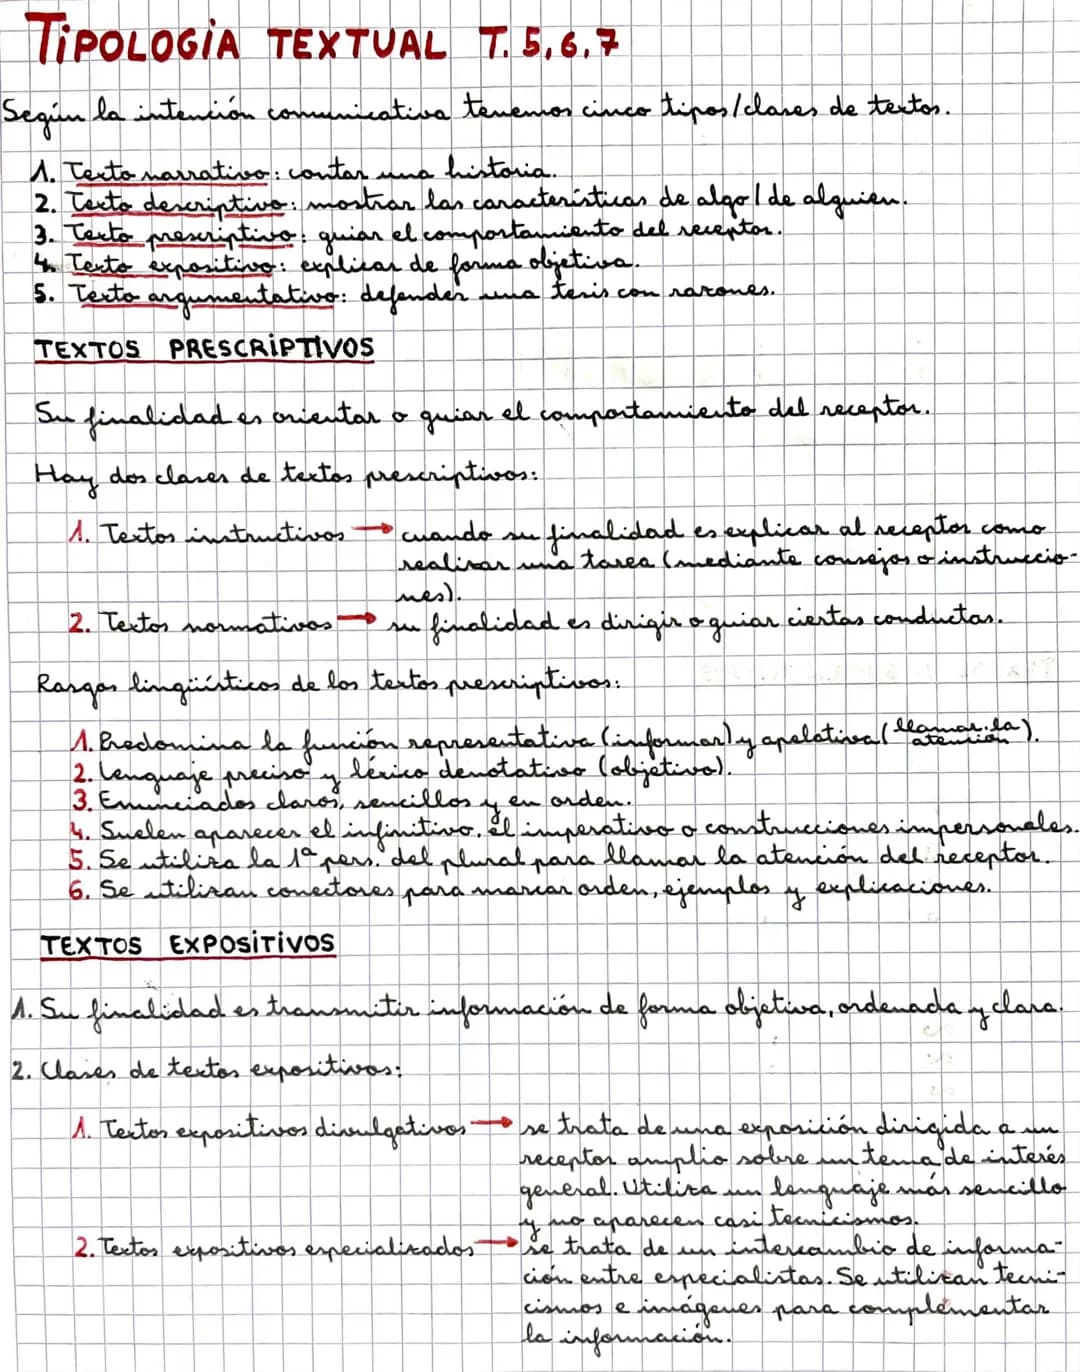 TIPOLOGÍA TEXTUAL T. 5, 6, 7
Según la intención comunicativa tenemos cinco tipos/clases de textos.
1. Texto narrativo: contar una historia.
2. Texto descriptivo: mostrar las características de algo / de alguien.
3. Texto prescriptivo: guiar el comportamiento del receptor.
4. Texto expositivo: explicar de forma objetiva.
5. Texto argumentativo: defender una tesis con razones.
TEXTOS PRESCRIPTIVOS
Su finalidad es orientar o guiar el comportamiento del receptor.
Hay dos clases de textos prescriptivos:
1. Textos instructivos → cuando su finalidad es explicar al receptor como
realizar una tarea (mediante consejos o instruccio-
nes).
2. Textos normativos → su finalidad es dirigir o guiar ciertas conductas.
Rasgos lingüísticos de los textos prescriptivos:
1. Predomina la función representativa (informar) y apelativa (llamar la atención).
2. Lenguaje preciso y léxico denotativo (objetivo).
3. Enunciados claros, sencillos y en orden.
4. Suelen aparecer el infinitivo, el imperativo o construcciones impersonales.
5. Se utiliza la 1ª pers. del plural para llamar la atención del receptor.
6. Se utilizan conectores para marcar orden, ejemplos y explicaciones.
TEXTOS EXPOSITIVOS
1. Su finalidad es transmitir información de forma objetiva, ordenada y clara.
2. Clases de textos expositivos:
1. Textos expositivos divulgativos → se trata de una exposición dirigida a un
receptor amplio sobre un tema de interés
general. Utiliza un lenguaje más sencillo
y no aparecen casi tecnicismos.
2. Textos expositivos especializados → se trata de un intercambio de informa-
ción entre especialistas. Se utilizan tecni-
cismos e imágenes para complementar
la información.